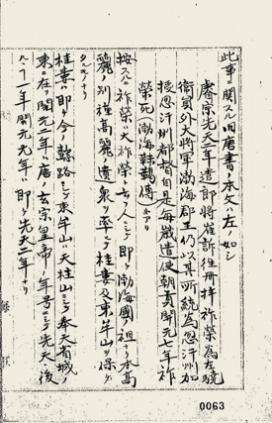 此事ニ関スル旧唐書ノ本文ハ左ノ如シ
睿宗先天二年遣郎将崔訢往冊拝祚榮為左驍
衛員外大将軍渤海郡王仍以其所統為忽汗州加
授忽汗州都督自是毎歳遣使朝貢開元七年祚
榮死(渤海靺鞨傳ニアリ)
按スルニ祚榮ハ大祚榮ト云フ人ニシテ即チ渤海國ノ祖ナリ本高
麗ノ別種高麗ノ遺衆ヲ率ヰテ桂婁及東牟山ヲ保ク
タルモノナリ
桂婁ハ即チ今ノ 路ニシテ東牟山ハ天柱山ニシテ奉天省城ノ
東ニ在リ開元二年ハ唐ノ玄宗皇帝ノ年号ニシテ先天ノ後
ナリ一年開元元年ハ即チ先天二年ナリ
0063